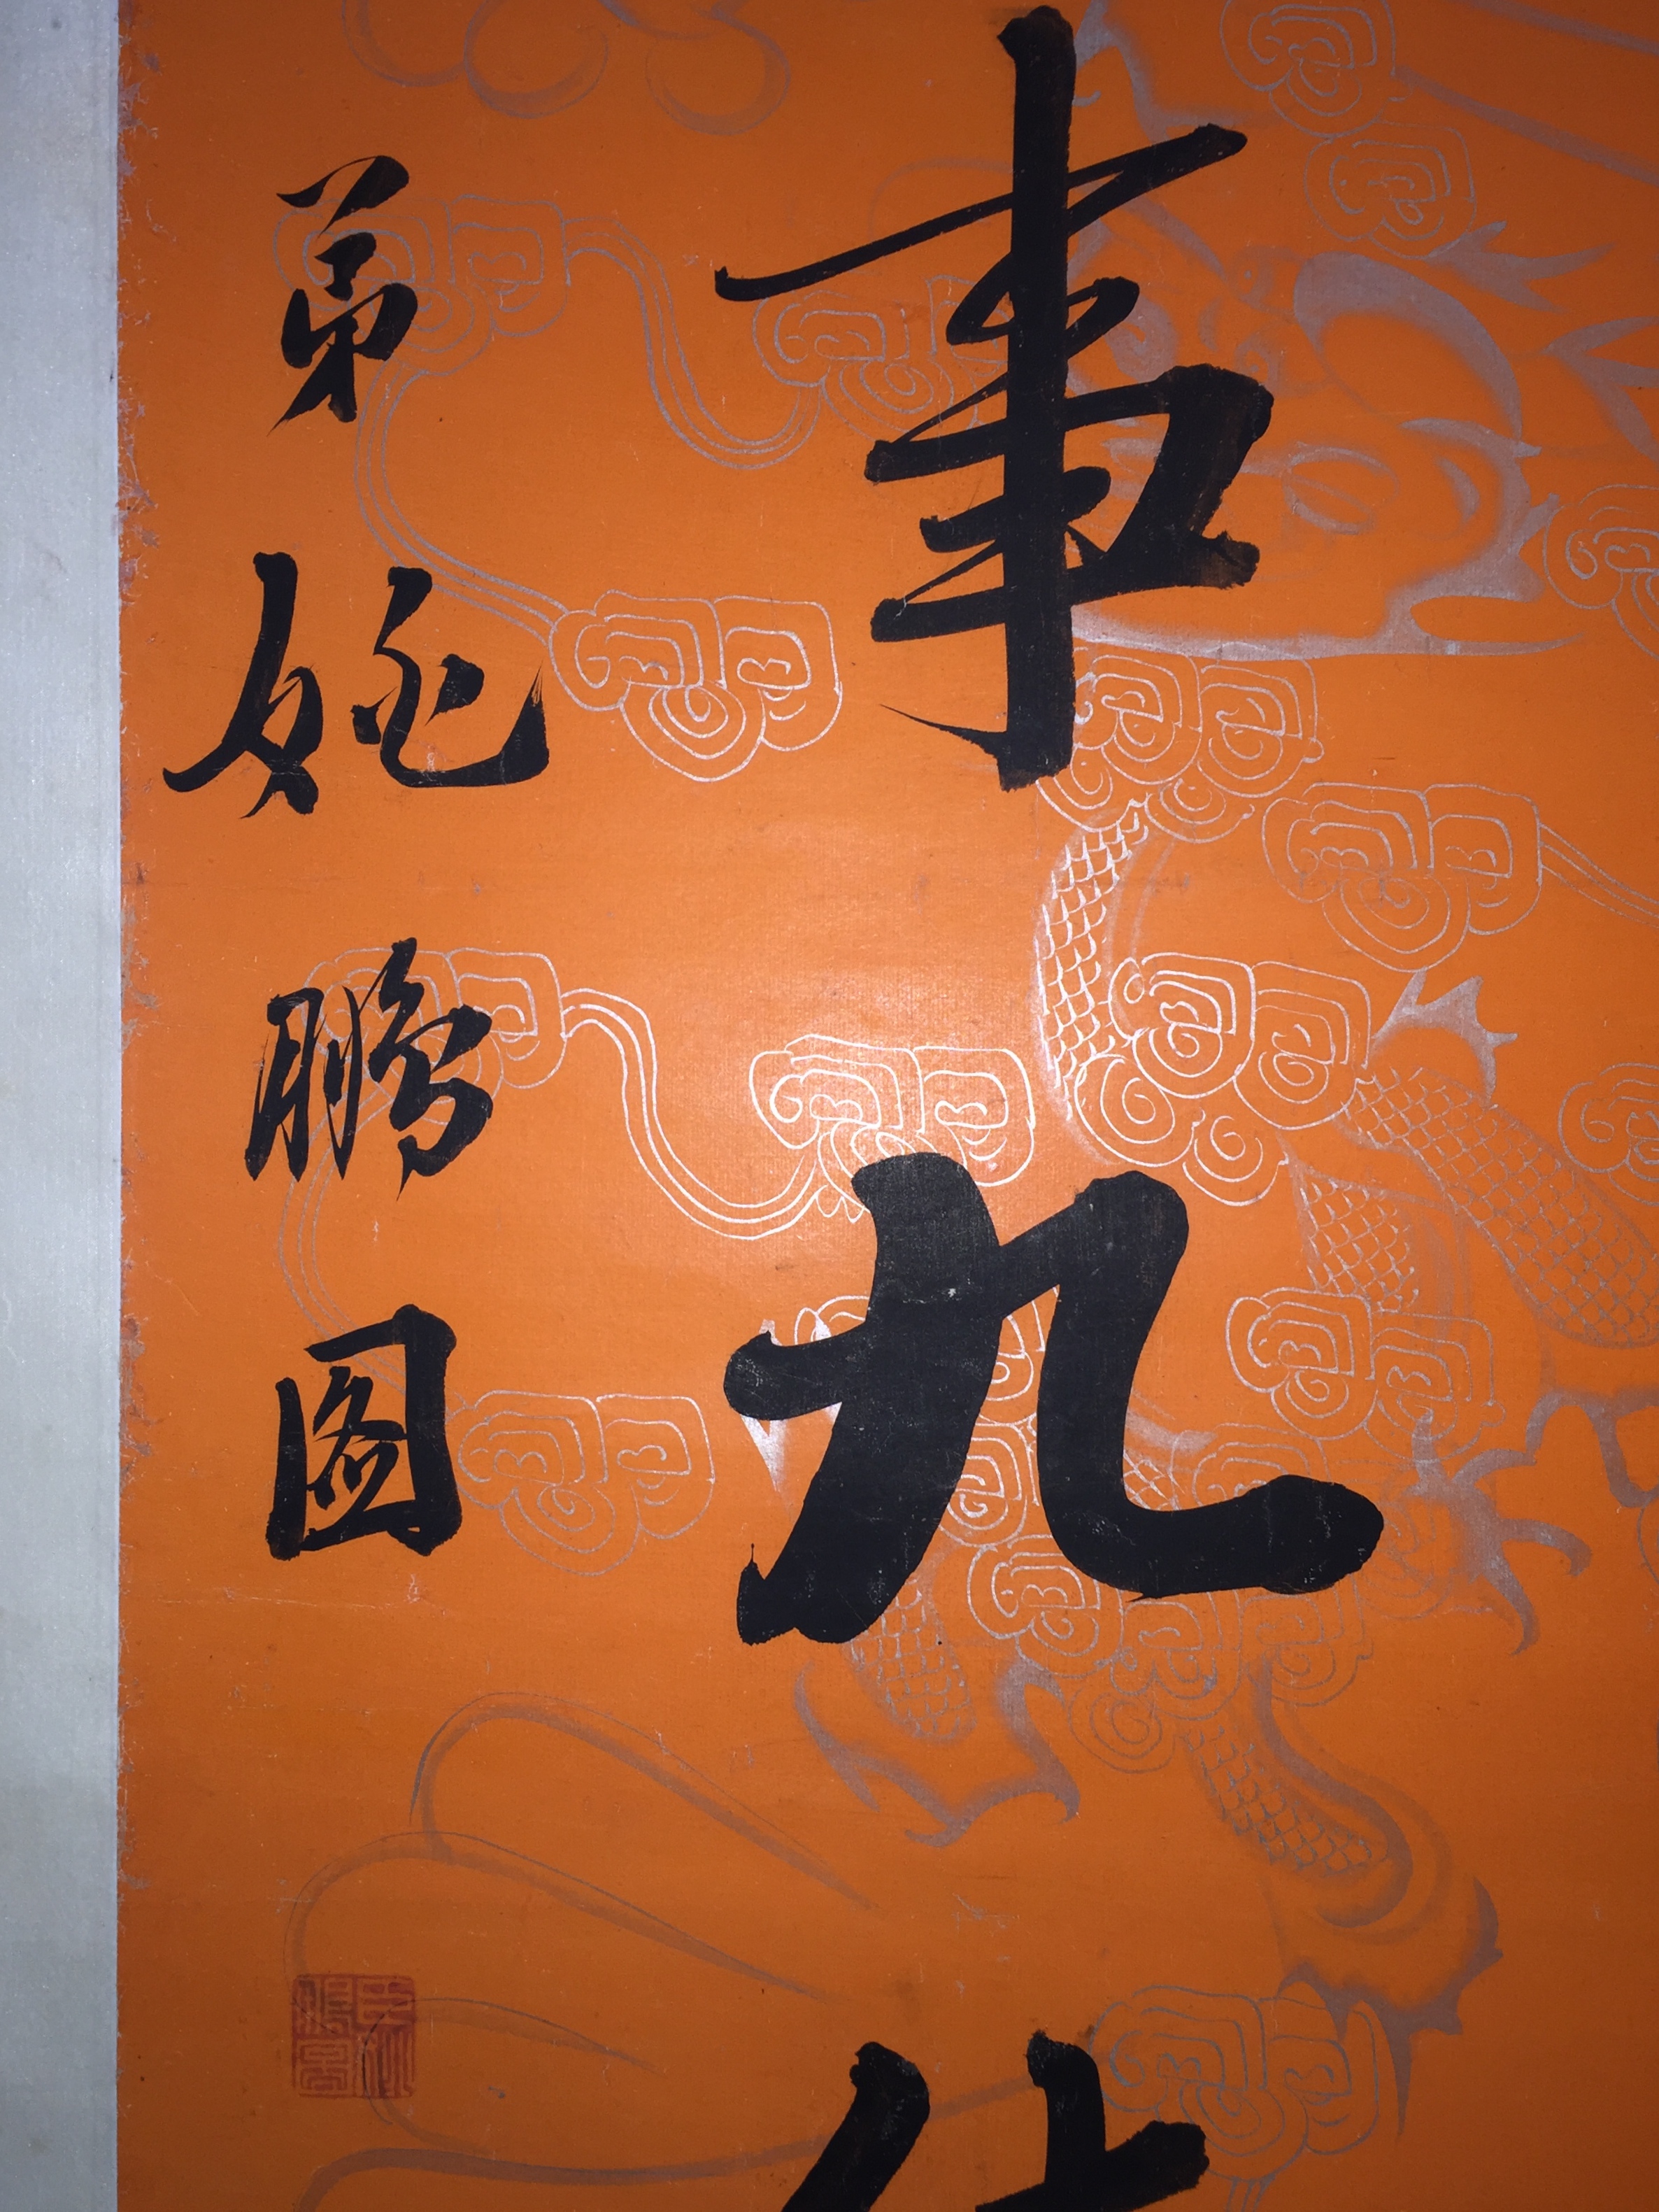 事九
弟姚鵬圖